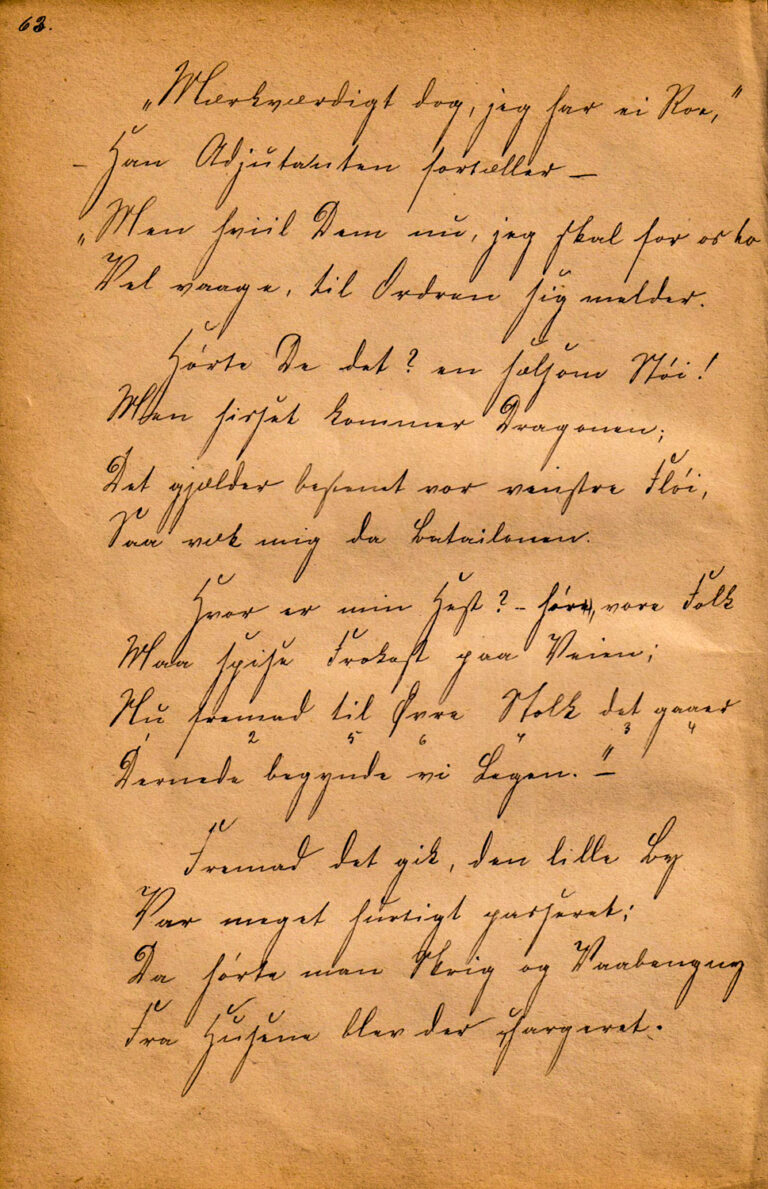 63.
„Mærkværdigt dog, jeg har ei Roe,"
– Han Adjutanten fortæller –
„Men hviil Dem nu, jeg skal for os to
Vel vaage, til Ordren sig melder.
Hörte De det? en sælsom Stöi!
Men hisset kommer Dragonen;
Det gjælder bestemt vor venstre Flöi,
Saa væk mig da Batailonen.
Hvor er min Hest? – höre, vore Folk
Maa spise Frokost paa Veien;
Nu fremad til Øvre Stolk det gaaer
1 2 5 6 7 3 4
Dernede begynde vi Legen." –
Fremad det gik, den lille By
Var meget hurtigt passeret;
Da hörte man Skrig og Vaabengny
Fra Husene blev der chargeret.